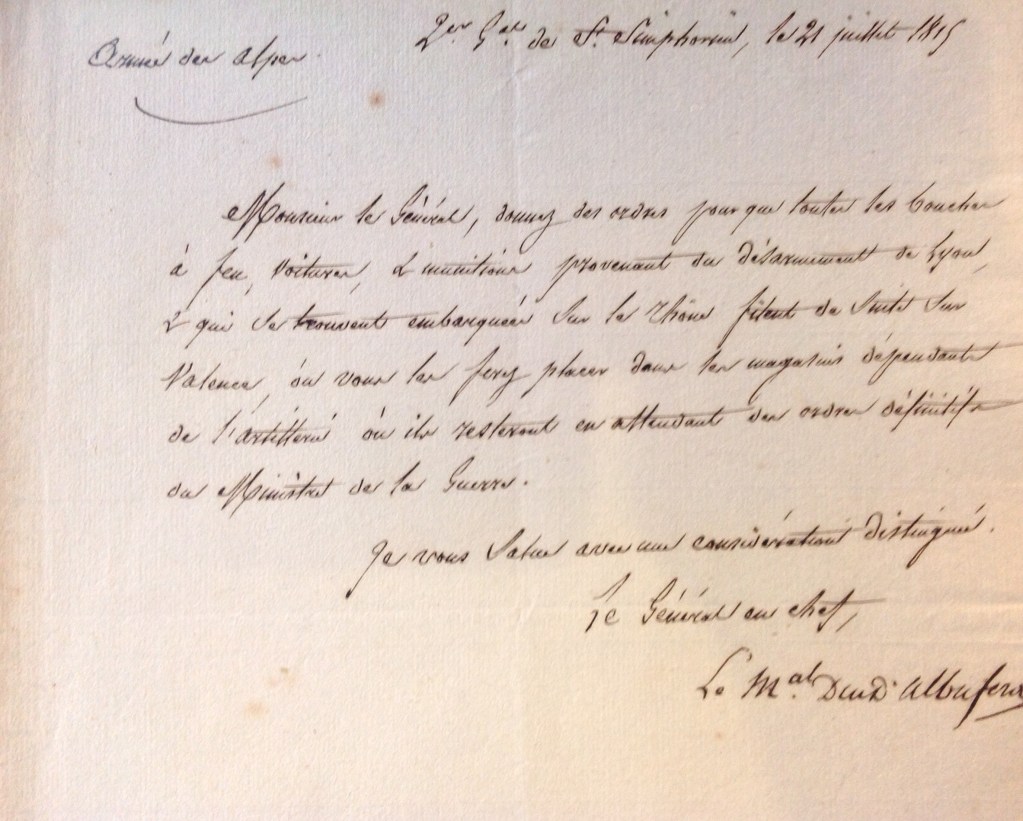 Armée des alpes.
Qer. Gal. de St. Simphorien, le 21 juillet 1815
Monsieur le Général, donnez des ordres pour que toutes les bouches
à feu, voitures, & munitions provenant du désarmement de Lyon,
& qui se trouvent embarquées sur le Rhône filent de suite sur
Valence, où vous les ferez placer dans les magasins dépendants
de l'artillerie où ils resteront en attendant des ordres définitifs
du Ministre de la Guerre.
Je vous salue avec une considération distinguée.
Le Général en chef,
Le Mal. Duc D'albufera